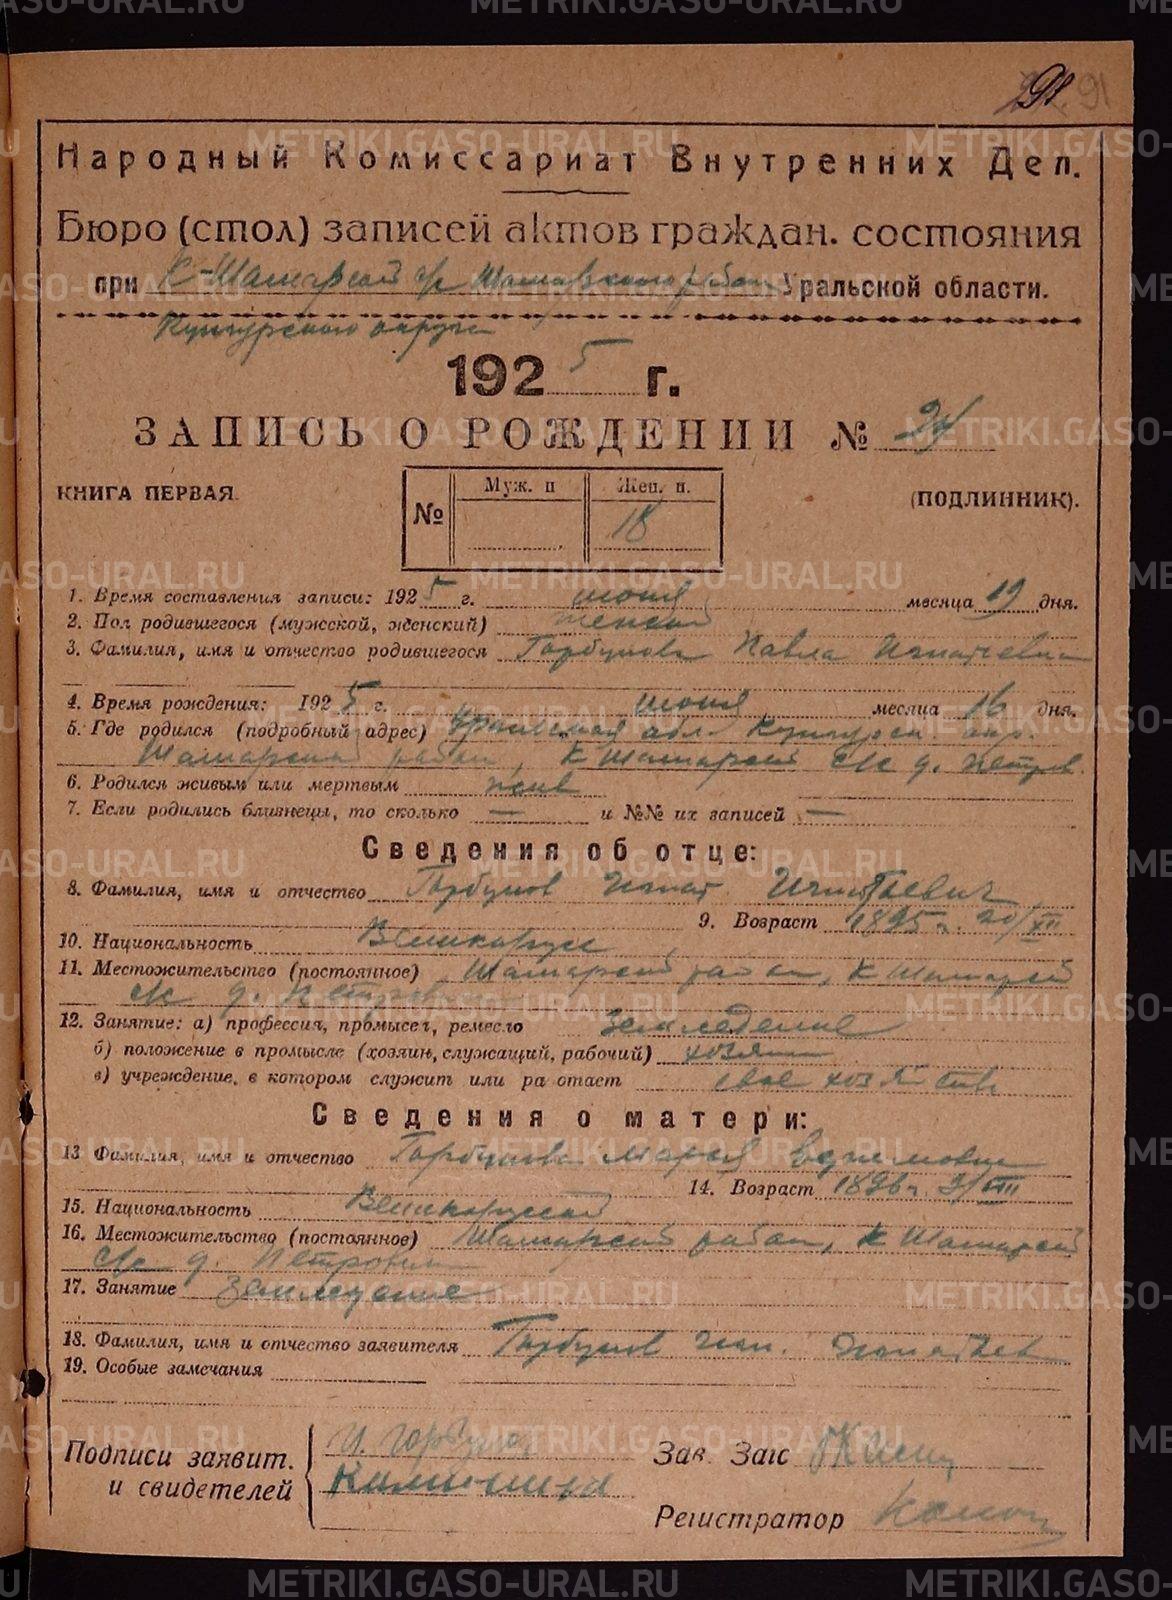 91
Народный Комиссариат Внутренних Дел.
Бюро (стол) записей актов граждан. состояния
при К-Шамарской с/с Шамарского район Уральской области.
Кунгурского округа
1925 г.
ЗАПИСЬ О РОЖДЕНИИ №
КНИГА ПЕРВАЯ. № Муж. п Жен. п. 18 (ПОДЛИННИК).
1. Время составления записи: 1925 г. июня месяца 19 дня.
2. Пол родившегося (мужской, женский) женской
3. Фамилия, имя и отчество родившегося Горбунова Павла Игнатьевна
4. Время рождения: 1925 г. июня месяца 16 дня.
5. Где родился (подробный адрес) Уральская обл. Кунгурск окр.
Шамарский район, К Шамарский с/с д. Петров.
6. Родился живым или мертвым жив
7. Если родились близнецы, то сколько — и №№ их записей —
Сведения об отце:
8. Фамилия, имя и отчество Горбунов Игнат Игнатьевич
9. Возраст 1895 г. 20/XII
10. Национальность Великорусс
11. Местожительство (постоянное) Шамарский район, К Шамарский
с/с д. Петров
12. Занятие: а) профессия, промысел, ремесло Земледелие
б) положение в промысле (хозяин, служащий, рабочий) хозяин
в) учреждение, в котором служит или ра отает свое хозяйство
Сведения о матери:
13 Фамилия, имя и отчество Горбунова Мария
14. Возраст 1896 г.
15. Национальность Великорусской
16. Местожительство (постоянное) Шамарский район, К Шамарский
с/с д. Петров
17. Занятие Земледелие
18. Фамилия, имя и отчество заявителя Горбунов Игн. Игнатьев
19. Особые замечания
Подписи заявит. И. Горбунов Зав. Загс
и свидетелей Регистратор
METRIKI.GASO-URAL.RU